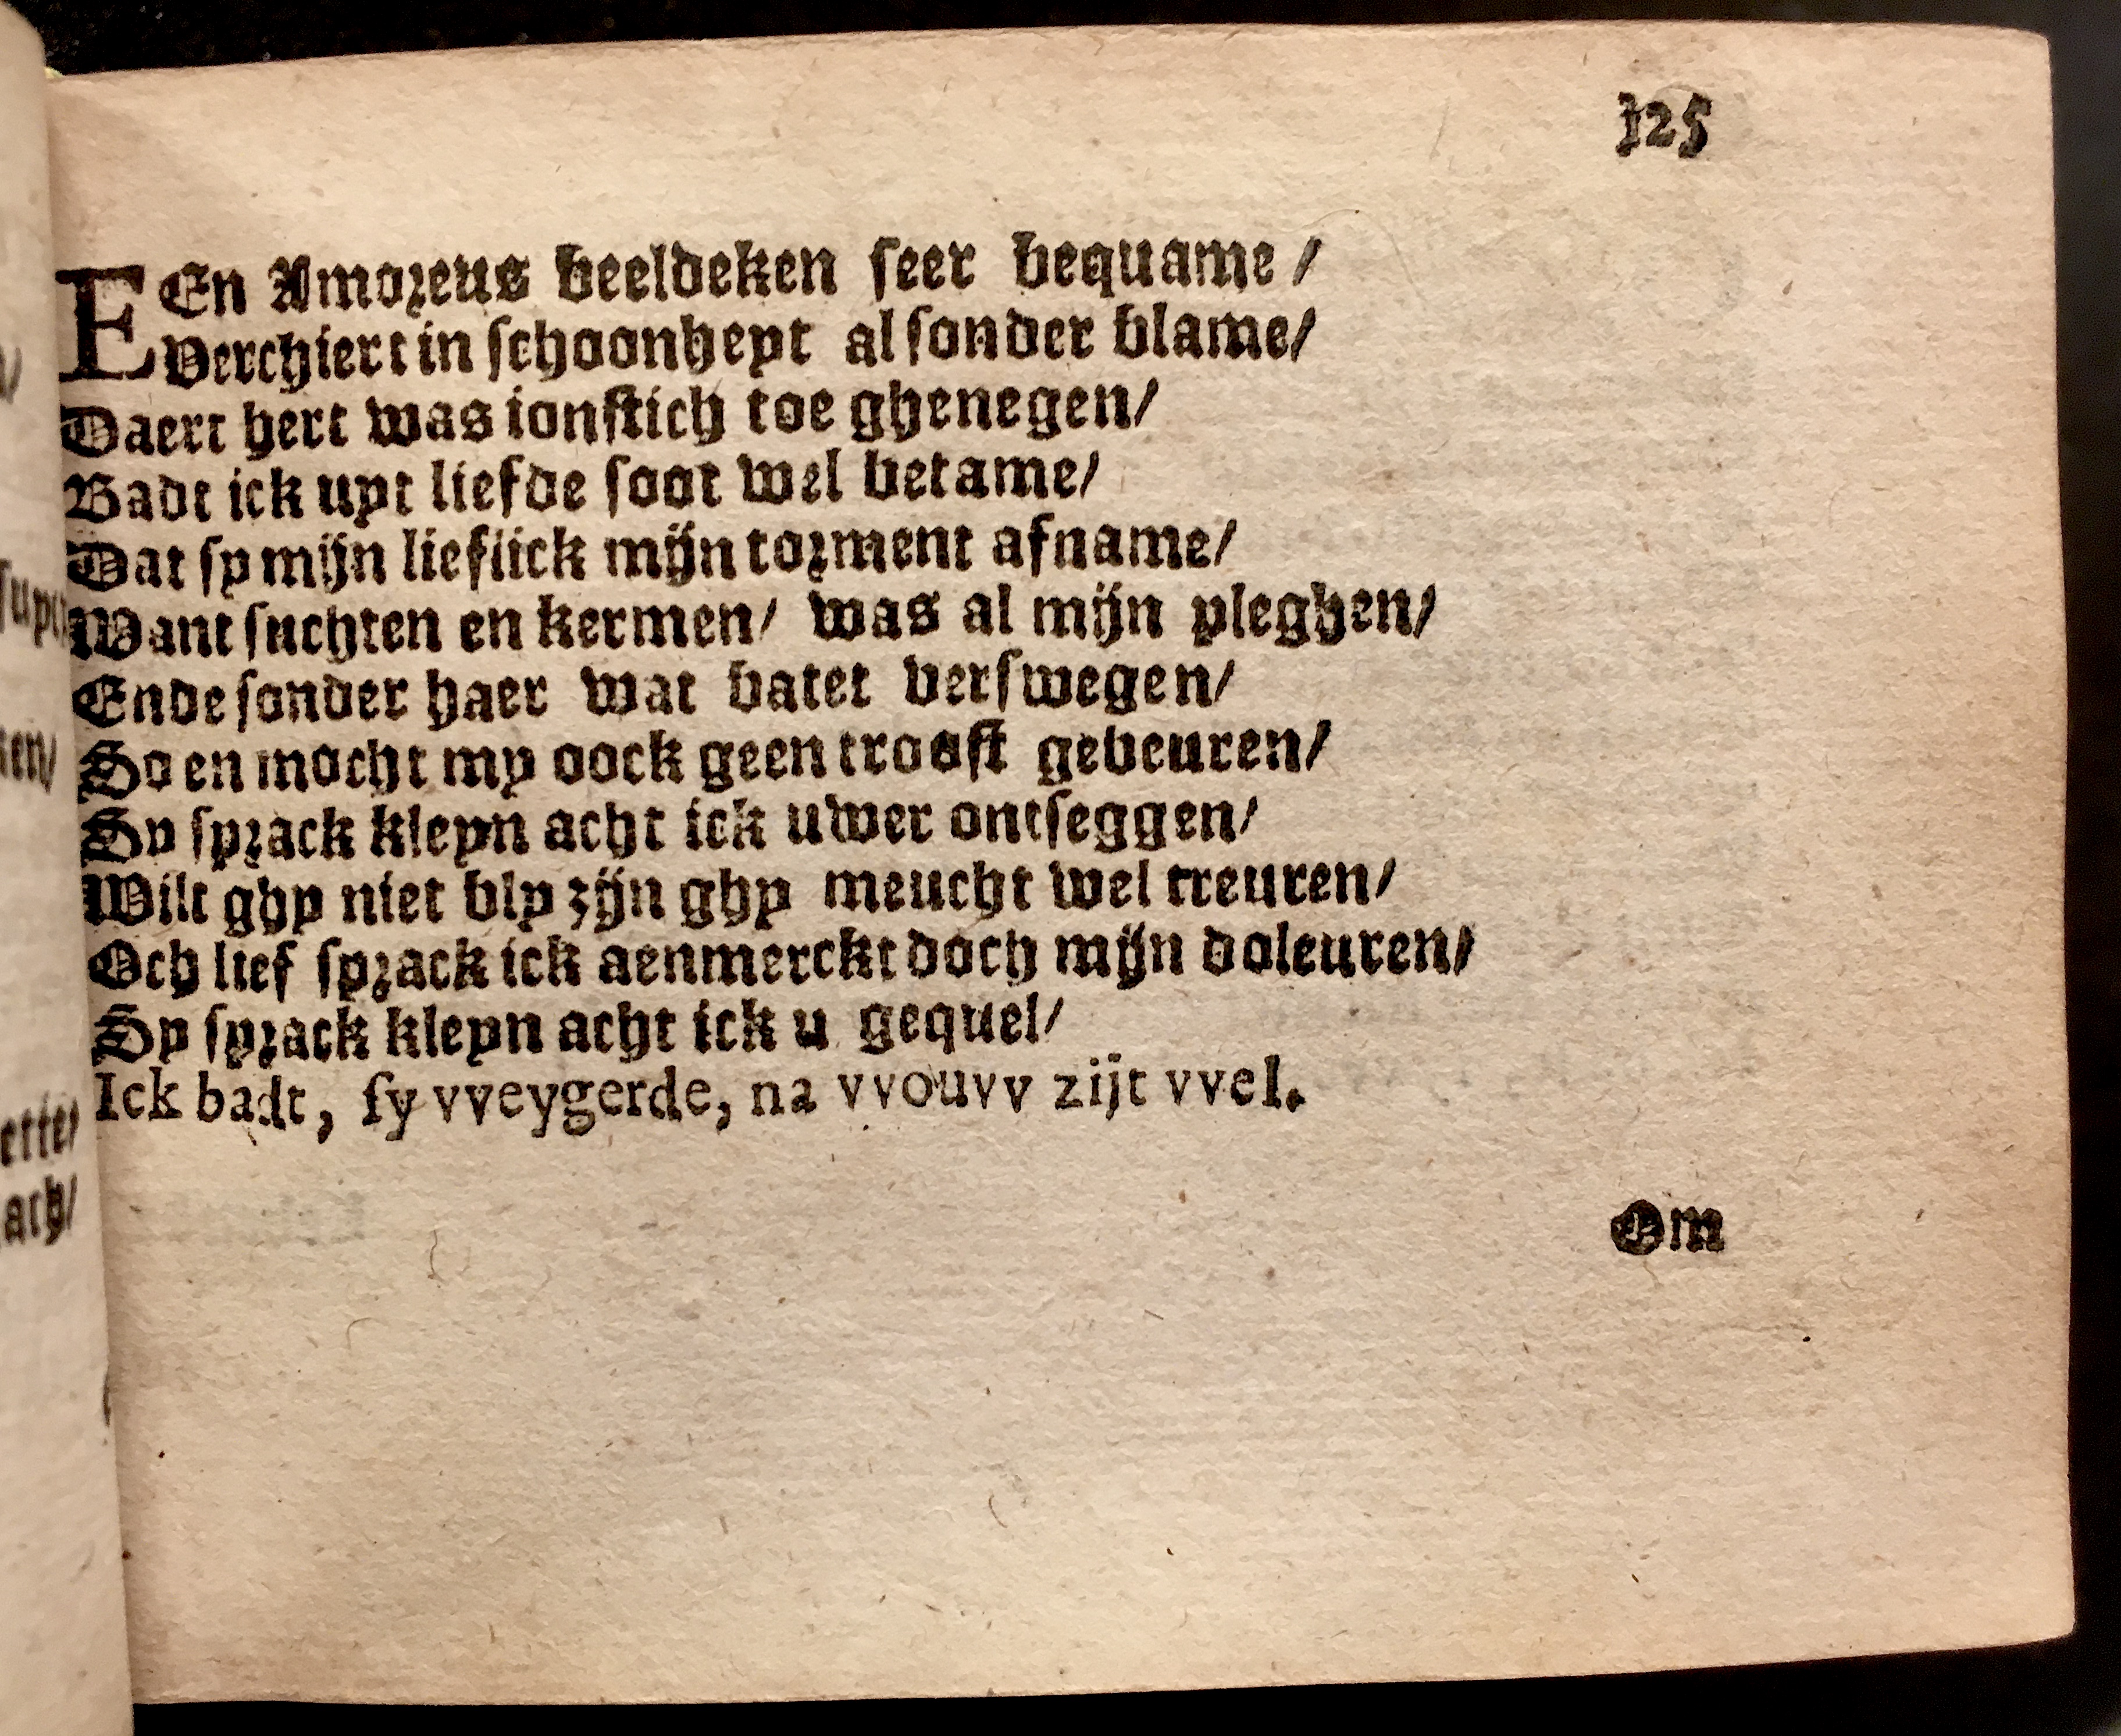 125
EEn Amoreus beeldeken seer bequame /
Verchiert in schoonheyt al sonder blame/
Daert hert was ionstich toe ghenegen/
Badt ick uyt liefde soot wel betame/
Dat sy mijn lieflick mijn torment afname/
Want suchten en kermen/ was al mijn pleghen/
Ende sonder haer wat batet verswegen/
So en mocht my oock geen troost gebeuren/
Sy sprack kleyn acht ick uwer ontseggen/
Wilt ghy niet bly zijn ghy meucht wel treuren/
Och lief sprack ick aenmerckt doch mijn doleuren/
Sy sprack kleyn acht ick u gequel/
Ick badt, sy vveygerde, na vvouvv zijt vvel.
Om